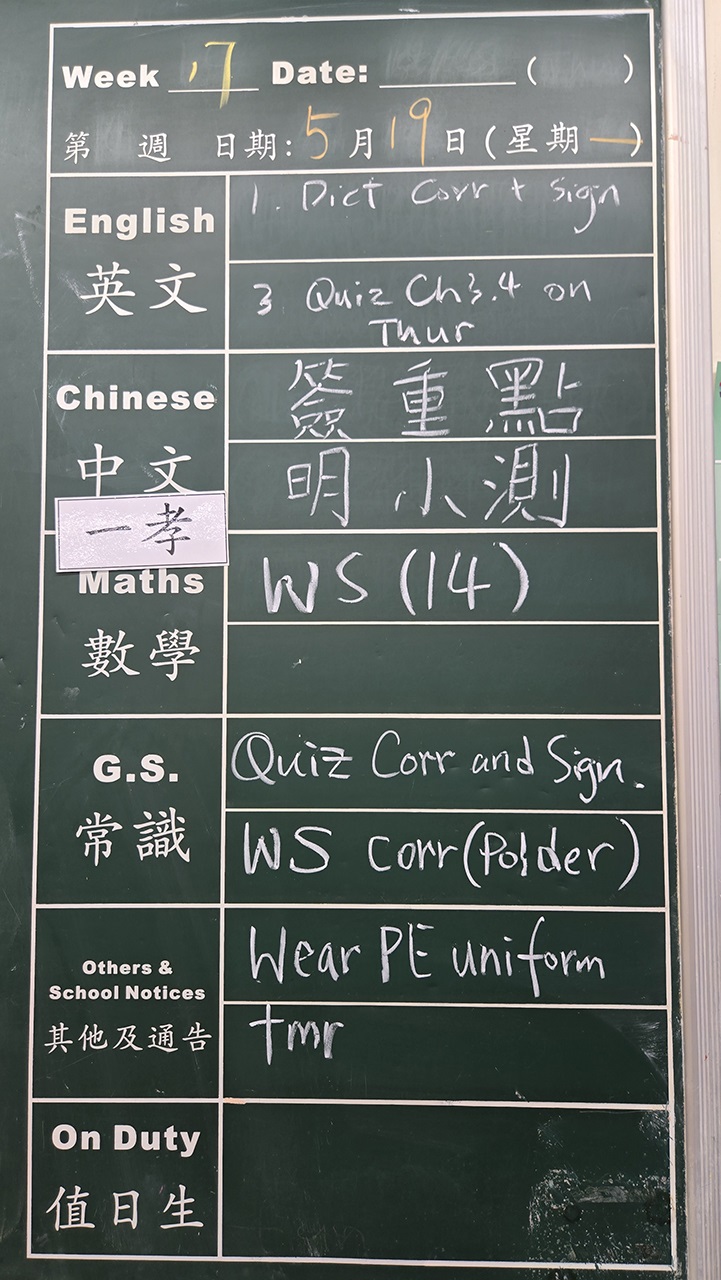 Week 17 Date: ( )
第 週 日期: 5月19日(星期一)
English
英文
1. Dict Corr + Sign
3. Quiz Ch3.4 on
Thur
Chinese
中文
簽重點
明小測
一孝
Maths
數學
WS (14)
G.S.
常識
Quiz Corr and Sign.
WS corr (Polder)
Others &
School Notices
其他及通告
Wear PE uniform
tmr
On Duty
值日生